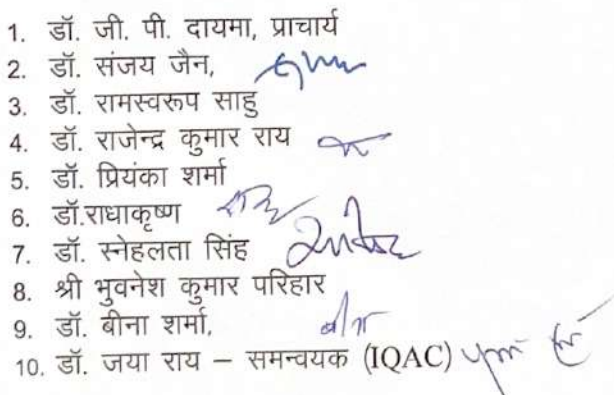 1. डॉ. जी. पी. दायमा, प्राचार्य
2. डॉ. संजय जैन,
3. डॉ. रामस्वरूप साहु
4. डॉ. राजेन्द्र कुमार राय
5. डॉ. प्रियंका शर्मा
6. डॉ.राधाकृष्ण
7. डॉ. स्नेहलता सिंह
8. श्री भुवनेश कुमार परिहार
9. डॉ. बीना शर्मा,
10. डॉ. जया राय – समन्वयक (IQAC)